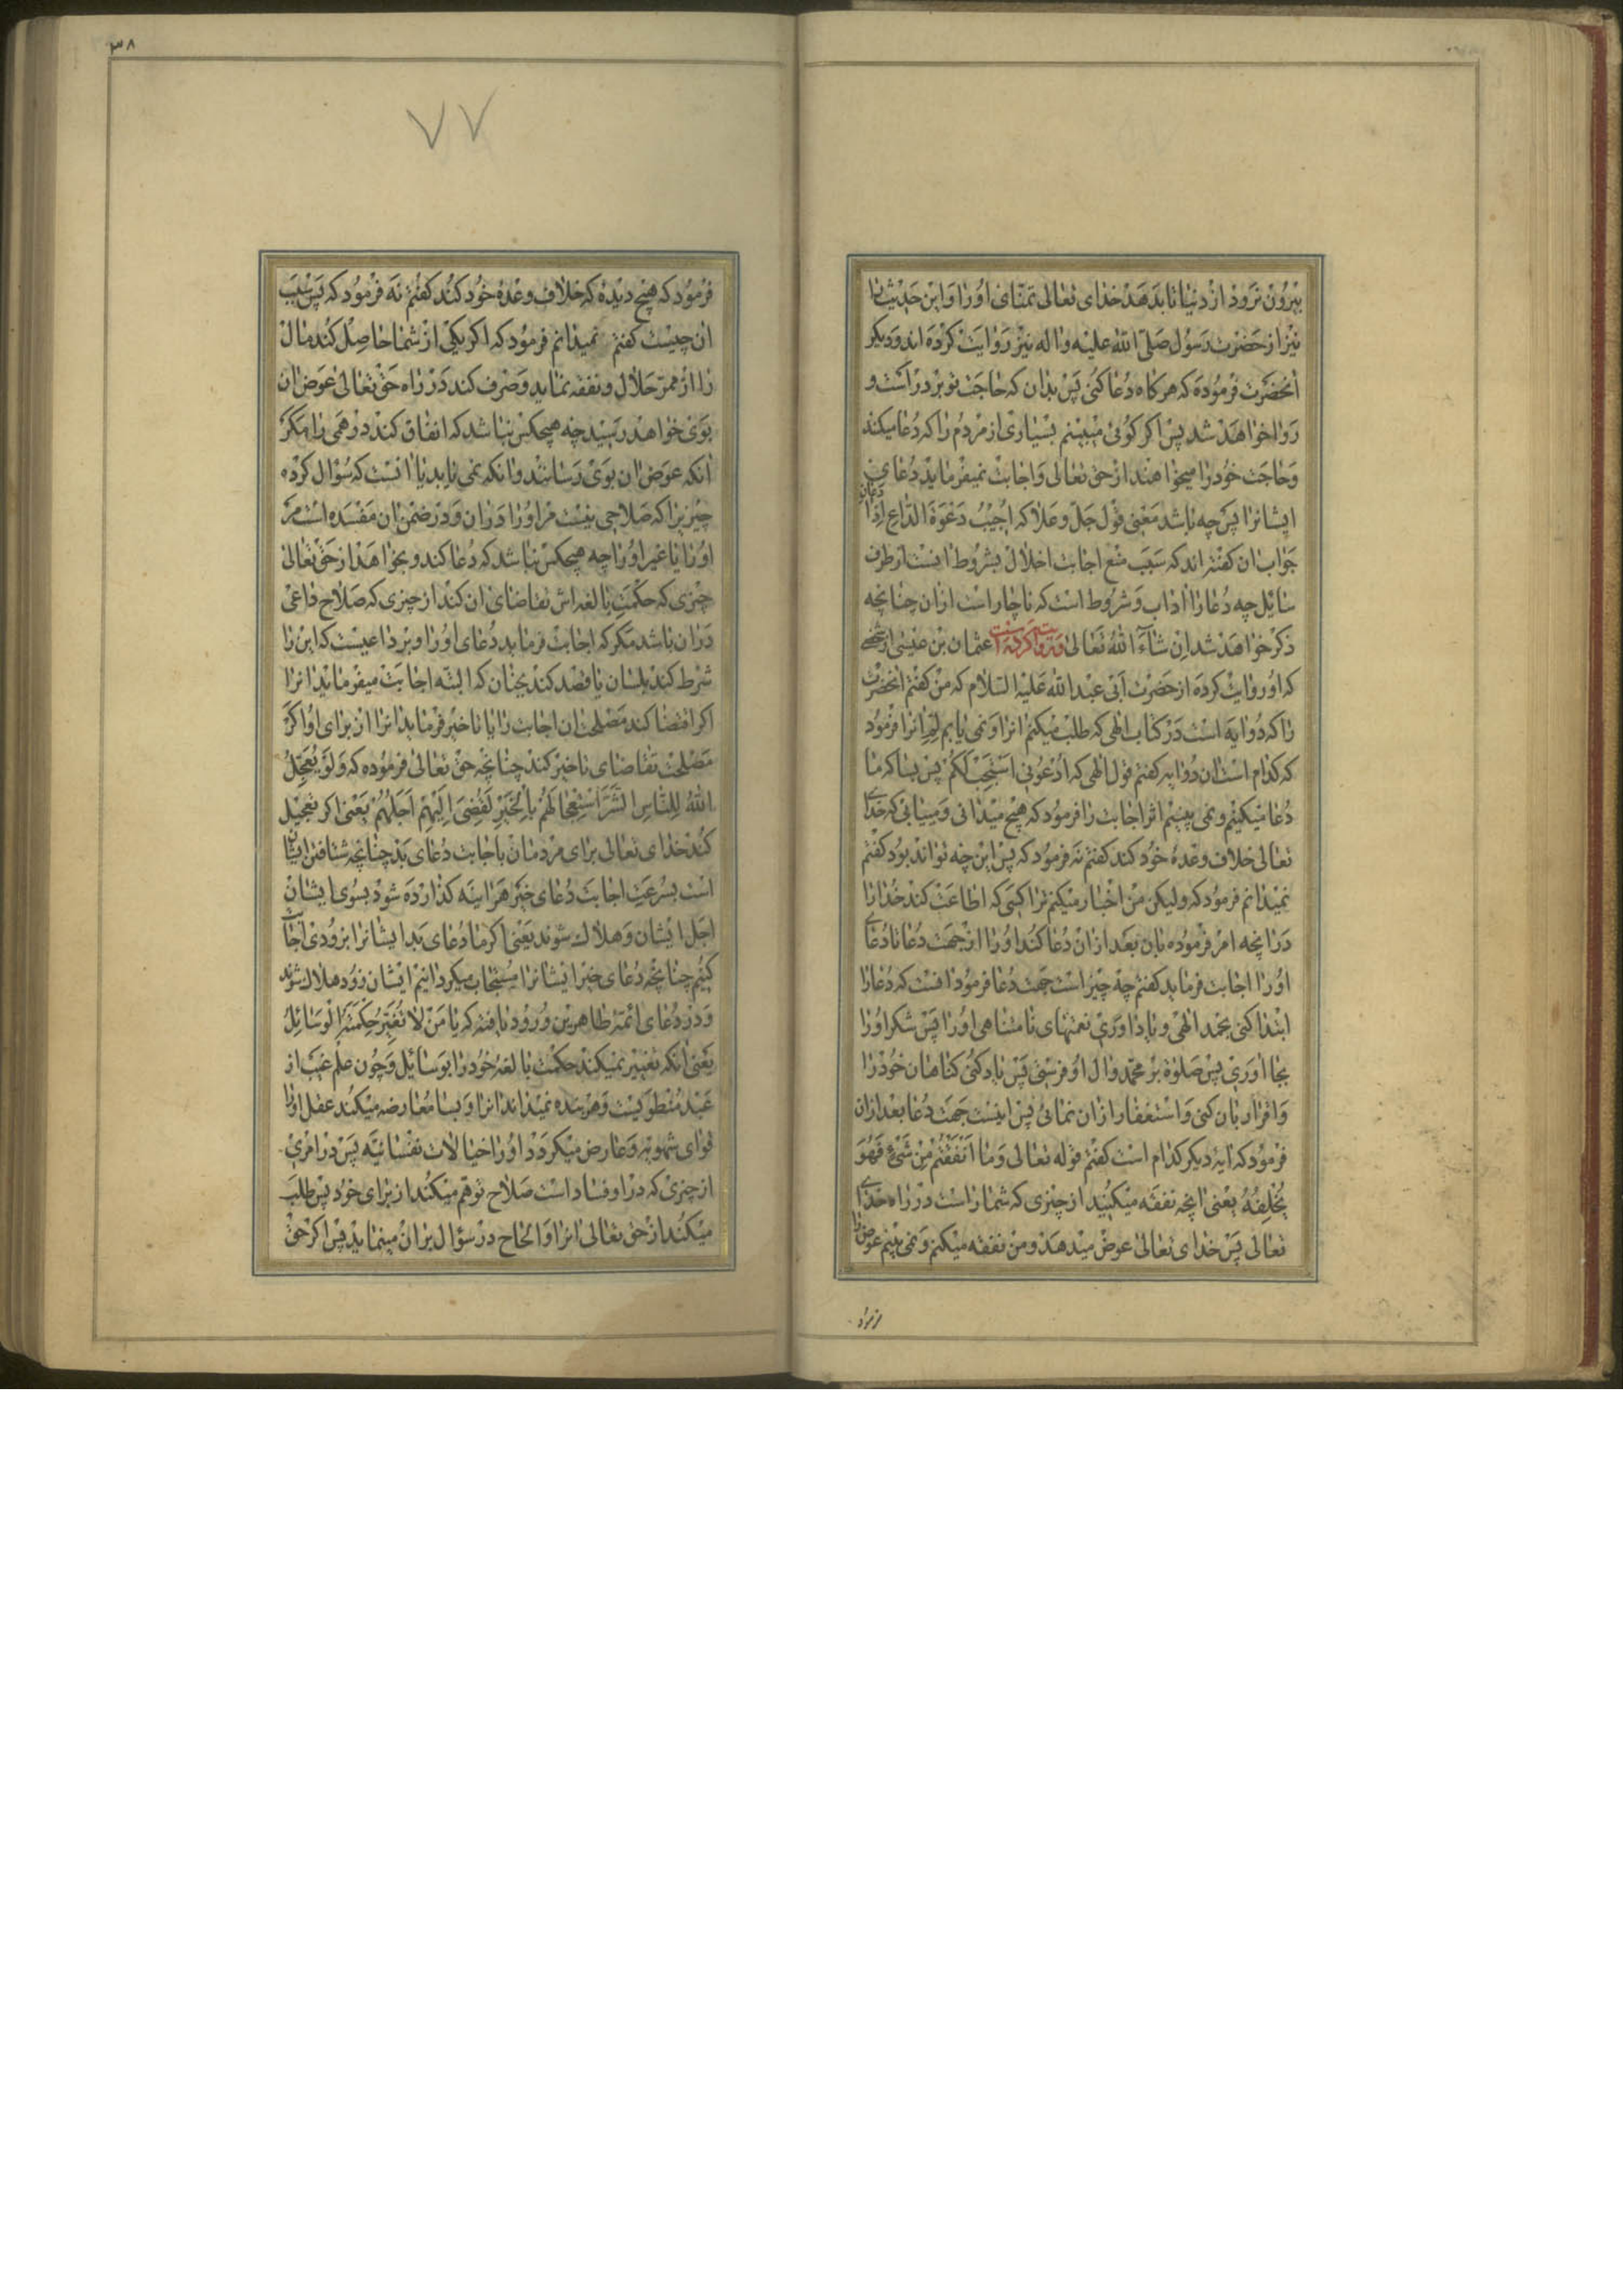 بیرون نرود از دنیا تا بدهد خدای تعالی تمنای او را و این حدیث را
نیز از حضرت رسول صلی الله علیه واله نیز روایت کرده اند و دیکر
انحضرت فرموده که هر کاه دعا کنی پس بدان که حاجت تو بر در است و
روا خواهد شد پس اکر کوئی میبینم بسیاری از مردم را که دعا میکند
و حاجت خود را میخواهند از حق تعالی و اجابت نمیفرماید دعای
ایشانرا پس چه باشد معنی قول جل وعلا که اجیب دعوة الداع اذا دعان
جواب ان کفته اند که سبب منع اجابت اخلال بشروط انست از طرف
سایل چه دعا را اداب و شروط است که ناچار است از ان چنانچه
ذکر خواهد شد ان شاء الله تعالی و روایت کرده است عثمان بن عیسی از
که او روایت کرده از حضرت ابی عبد الله علیه السلام که من کفتم انحضرت
را که دو ایه است در کتاب الهی که طلب میکنم انرا و نمی یابم انرا فرمود
که کدام است ان دو ایه کفتم قول الهی که ادعونی استجب لکم پس بسا که ما
دعا میکنیم و نمی بینیم اثر اجابت را فرمود که هیچ میدانی و مییابی که خدای
تعالی خلاف وعده خود کند کفتم نه فرمود که پس این چه تواند بود کفتم
نمیدانم فرمود که ولیکن من اخبار میکنم ترا کسی که اطاعت کند خدا را
در انچه امر فرموده بان بعد از ان دعا کند او را از جهت دعا تا دعای
او را اجابت فرماید کفتم چه چیز است جهت دعا فرمود انست که دعا را
ابتدا کنی بحمد الهی و یاد اوری نعمتهای نامتناهی او را پس شکر او را
بجا اوری پس صلوة بر محمد وال او فرستی پس یاد کنی کناهان خود را
و اقرار بان کنی و استغفار از ان نمائی پس اینست جهت دعا بعد از ان
فرمود که ایه دیکر کدام است کفتم قوله تعالی وما انفقتم من شیء فهو
یخلفه یعنی انچه نفقه میکنید از چیزی که شما راست در راه خدای
تعالی پس خدای تعالی عوض میدهد و من نفقه میکنم و نمی بینم عوض را
فرمود
۳۸
۷۷
فرمود که هیچ دیده که خلاف وعده خود کند کفتم نه فرمود که پس سبب
ان چیست کفتم نمیدانم فرمود که اکر یکی از شما حاصل کند مال
را از ممر حلال و نفقه نماید و صرف کند در راه حق تعالی عوض ان
بوی خواهد رسید چه هیچکس نباشد که انفاق کند درهمی را مکر
انکه عوض ان بوی رسانند و انکه نمی یابد یا انست که سؤال کرده
چیزیرا که صلاحی نیست مر او را در ان و در ضمن ان مفسده است مر
او را یا غیر او را چه هیچکس نباشد که دعا کند و بخواهد از حق تعالی
چیزی که حکمت بالغه اش تقاضای ان کند از چیزی که صلاح داعی
در ان باشد مکر که اجابت فرماید دعای او را و بر داعیست که این را
شرط کند بلسان یا قصد کند بجنان که البته اجابت میفرماید انرا
اکر اقتضا کند مصلحت ان اجابت را یا تاخیر فرماید انرا از برای او اکر
مصلحت تقاضای تاخیر کند چنانچه حق تعالی فرموده که ولو یعجل
الله للناس الشر استعجالهم بالخیر لقضی الیهم اجلهم یعنی اکر تعجیل
کند خدای تعالی برای مردمان باجابت دعای بد چنانچه شتافتن ایشان
است بسرعت اجابت دعای خیر هراینه کذارده شود بسوی ایشان
اجل ایشان و هلاک شوند یعنی اکر ما دعای بد ایشانرا بزودی اجابت
کنیم چنانچه دعای خیر ایشانرا مستجاب میکردانیم ایشان زود هلاک شوند
و در دعای ائمه طاهرین ورود یافته که یا من لا تغیر حکمته الوسائل
یعنی انکه تغییر نمیکند حکمت بالغه خود را بوسایل و چون علم غیب از
عبد منطویست و هر بنده نمیداند انرا و بسا معارضه میکند عقل او را
قوای شهویه و عارض میکردد او را خیالات نفسانیه پس در امری
از چیزی که در او فساد است صلاح توهم میکند از برای خود پس طلب
میکند از حق تعالی انرا و الحاح در سؤال بر ان مینماید پس اکر حق